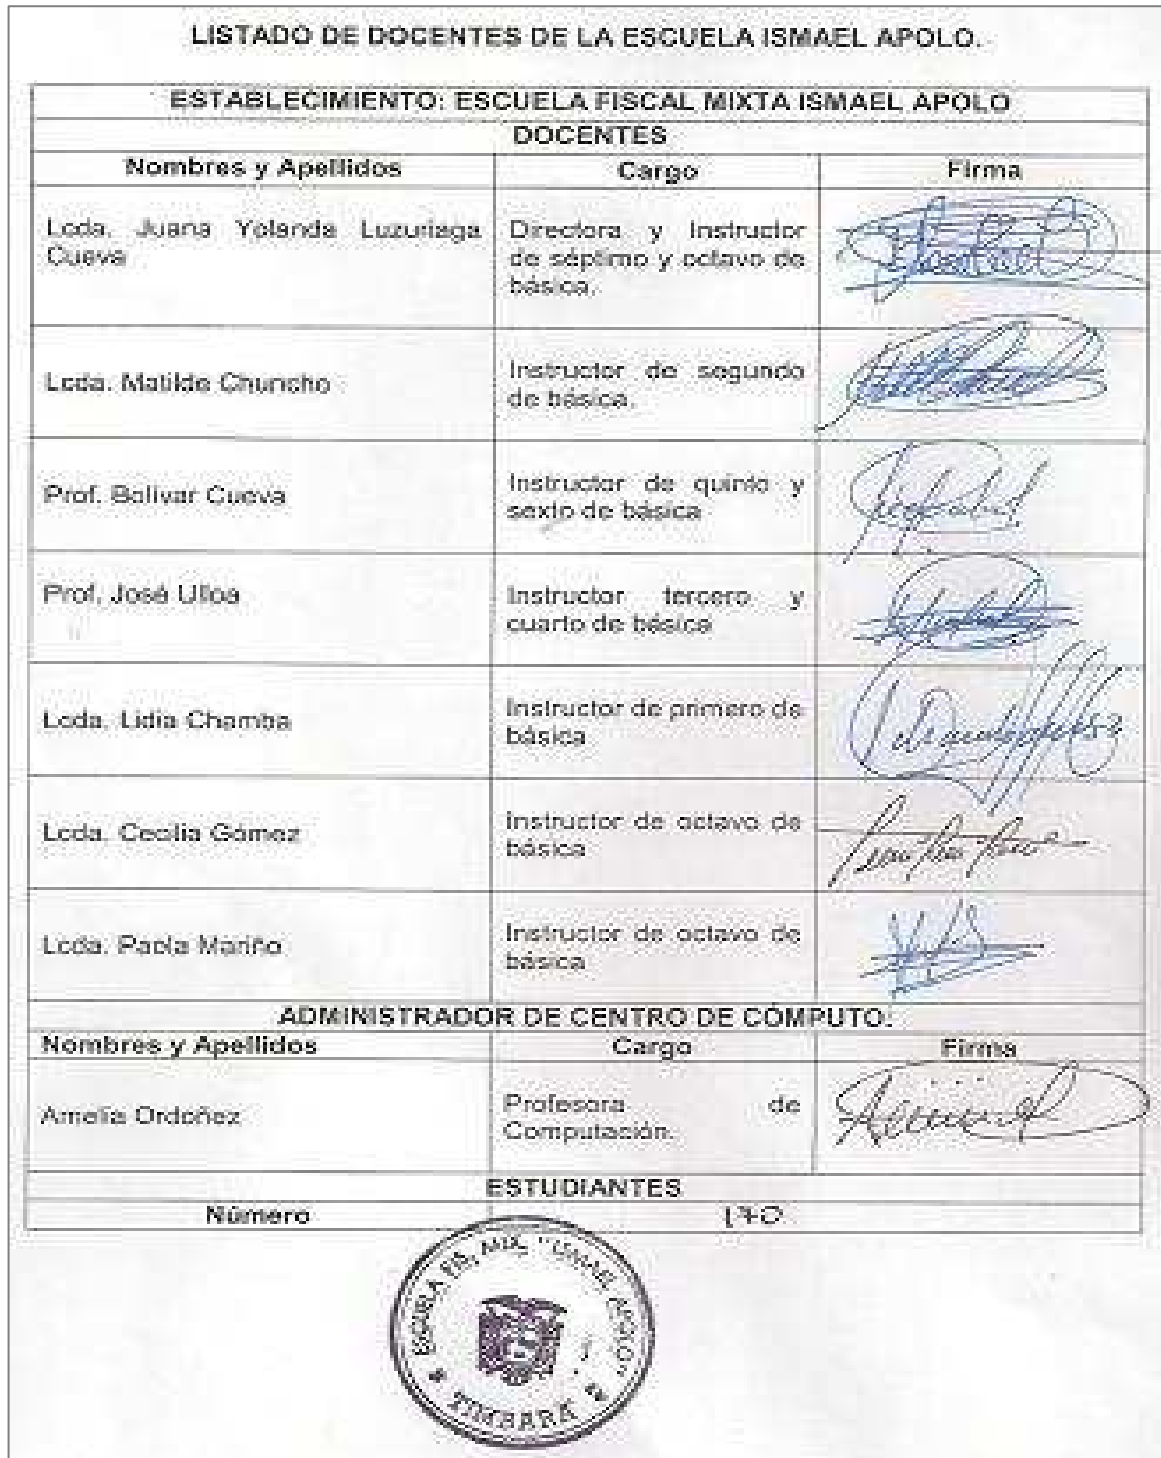 LISTADO DE DOCENTES DE LA ESCUELA ISMAEL APOLO.
ESTABLECIMIENTO: ESCUELA FISCAL MIXTA ISMAEL APOLO
DOCENTES
Nombres y Apellidos Cargo Firma
Lcda. Juana Yolanda Luzuriaga
Cueva
Directora y Instructor
de séptimo y octavo de
básica.
Lcda. Matilde Chuncho
Instructor de segundo
de básica.
Prof. Bolivar Cueva
Instructor de quinto y
sexto de básica
Prof. José Ulloa
Instructor tercero y
cuarto de básica
Lcda. Lidia Chamba
Instructor de primero de
básica
Lcda. Cecilia Gómez
Instructor de octavo de
básica
Lcda. Paola Mariño
Instructor de octavo de
básica
ADMINISTRADOR DE CENTRO DE CÓMPUTO.
Nombres y Apellidos Cargo Firma
Amelia Ordoñez
Profesora de
Computación.
ESTUDIANTES
Número 170
ESCUELA FIS. MIX. "ISMAEL APOLO"
TIMBARA